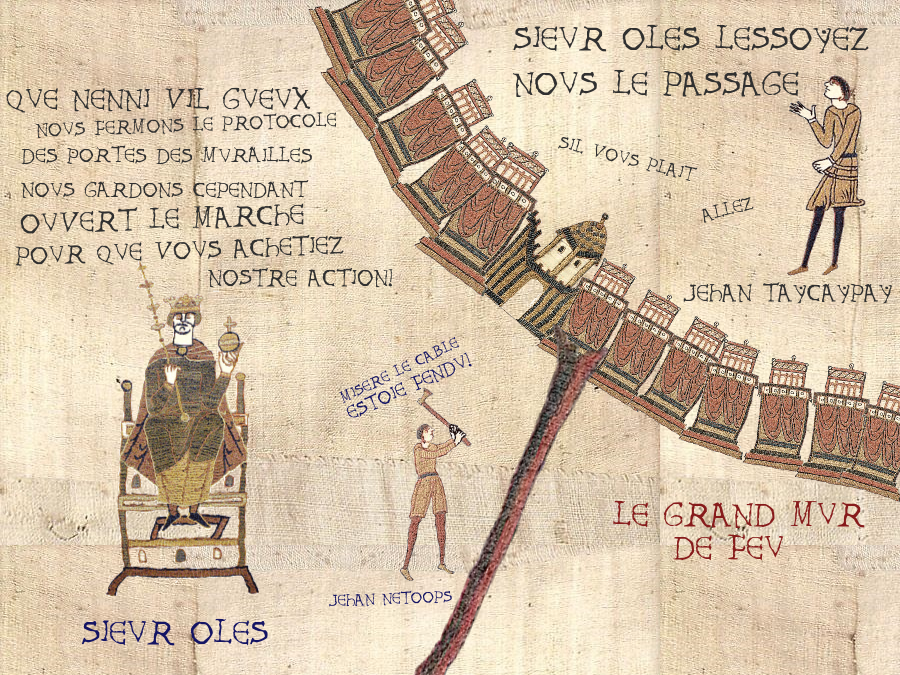 SIEVR OLES LESSOYEZ
NOVS LE PASSAGE
SIL VOVS PLAIT
ALLEZ
JEHAN TAYCAYPAY
QVE NENNI VIL GVEVX
NOVS FERMONS LE PROTOCOLE
DES PORTES DES MVRAILLES
NOVS GARDONS CEPENDANT
OVVERT LE MARCHE
POVR QVE VOVS ACHETIEZ
NOSTRE ACTION!
MISERE LE CABLE
ESTOIE FENDV!
JEHAN NETOOPS
LE GRAND MVR
DE FEV
SIEVR OLES